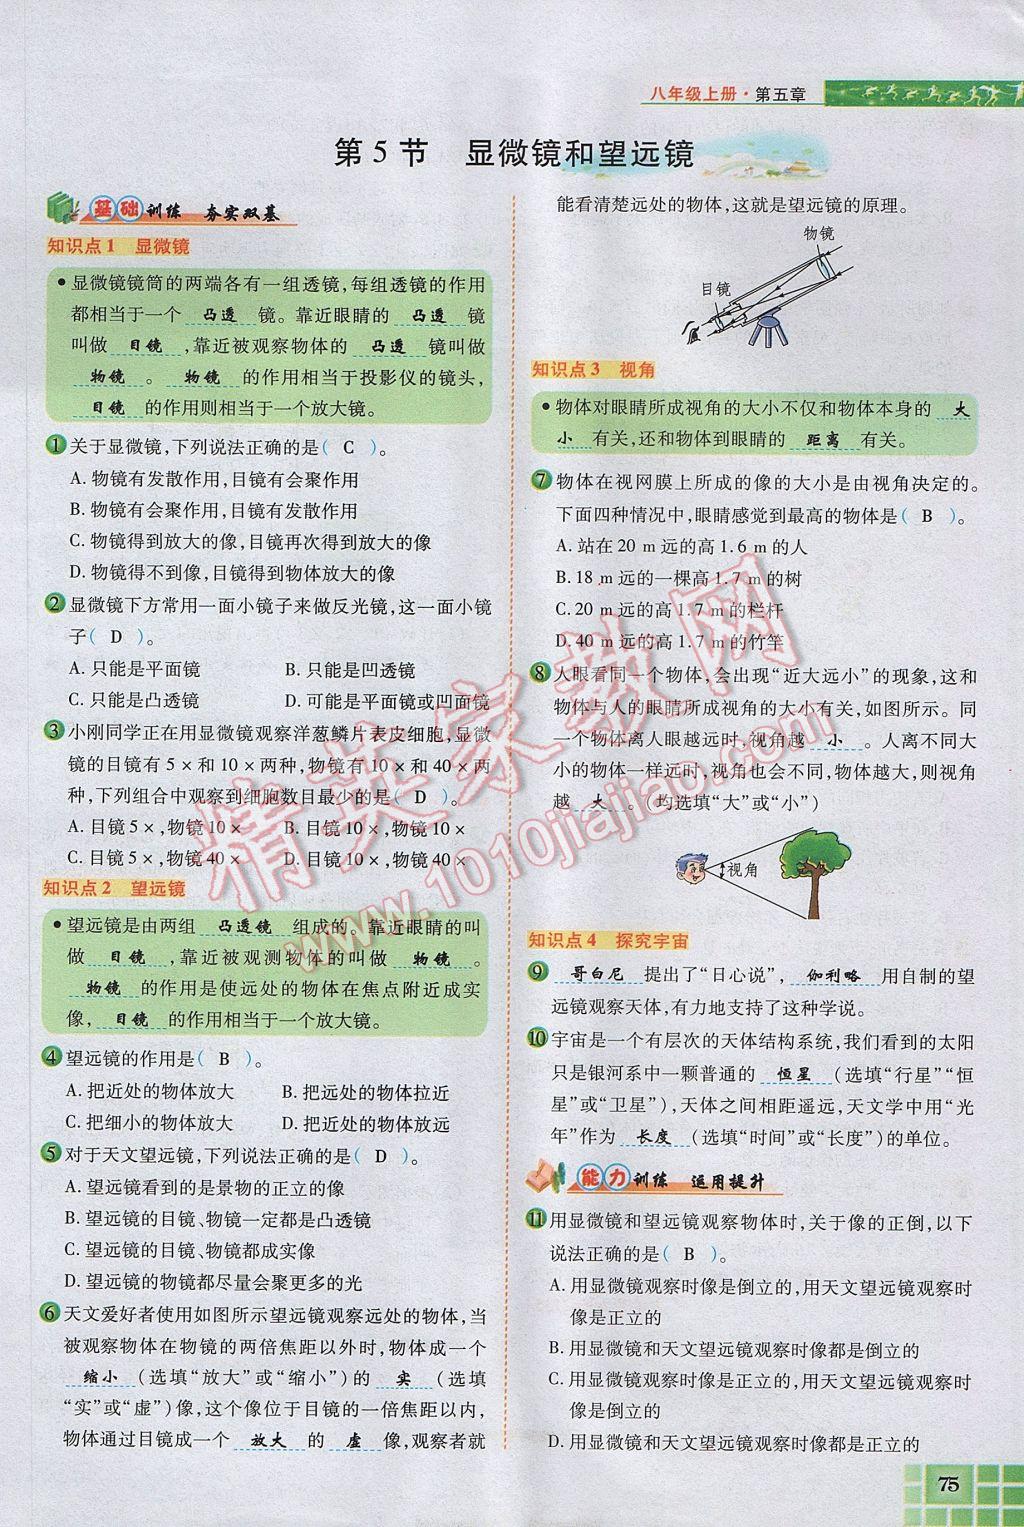 八年级上册·第五章
第5节 显微镜和望远镜
基础训练 夯实双基
知识点1 显微镜
•显微镜镜筒的两端各有一组透镜,每组透镜的作用
都相当于一个 凸透 镜。靠近眼睛的 凸透 镜
叫做 目镜 ,靠近被观察物体的 凸透 镜叫做
物镜 。 物镜 的作用相当于投影仪的镜头,
目镜 的作用则相当于一个放大镜。
1 关于显微镜,下列说法正确的是( C )。
A. 物镜有发散作用,目镜有会聚作用
B. 物镜有会聚作用,目镜有发散作用
C. 物镜得到放大的像,目镜再次得到放大的像
D. 物镜得不到像,目镜得到物体放大的像
2 显微镜下方常用一面小镜子来做反光镜,这一面小镜
子( D )。
A. 只能是平面镜 B. 只能是凹透镜
C. 只能是凸透镜 D. 可能是平面镜或凹面镜
3 小刚同学正在用显微镜观察洋葱鳞片表皮细胞,显微
镜的目镜有 5×和 10×两种,物镜有 10×和 40×两
种,下列组合中观察到细胞数目最少的是( D )。
A. 目镜 5×,物镜 10× B. 目镜 10×,物镜 10×
C. 目镜 5×,物镜 40× D. 目镜 10×,物镜 40×
知识点2 望远镜
•望远镜是由两组 凸透镜 组成的。靠近眼睛的叫
做 目镜 ,靠近被观测物体的叫做 物镜 。
物镜 的作用是使远处的物体在焦点附近成实
像, 目镜 的作用相当于一个放大镜。
4 望远镜的作用是( B )。
A. 把近处的物体放大 B. 把远处的物体拉近
C. 把细小的物体放大 D. 把近处的物体放远
5 对于天文望远镜,下列说法正确的是( D )。
A. 望远镜看到的是景物的正立的像
B. 望远镜的目镜、物镜一定都是凸透镜
C. 望远镜的目镜、物镜都成实像
D. 望远镜的物镜都尽量会聚更多的光
6 天文爱好者使用如图所示望远镜观察远处的物体,当
被观察物体在物镜的两倍焦距以外时,物体成一个
缩小 (选填“放大”或“缩小”)的 实 (选填
“实”或“虚”)像,这个像位于目镜的一倍焦距以内,
物体通过目镜成一个 放大 的 虚 像,观察者就
能看清楚远处的物体,这就是望远镜的原理。
物镜
目镜
知识点3 视角
•物体对眼睛所成视角的大小不仅和物体本身的 大
小 有关,还和物体到眼睛的 距离 有关。
7 物体在视网膜上所成的像的大小是由视角决定的。
下面四种情况中,眼睛感觉到最高的物体是( B )。
A. 站在 20 m 远的高 1.6 m 的人
B. 18 m 远的一棵高 1.7 m 的树
C. 20 m 远的高 1.7 m 的栏杆
D. 40 m 远的高 1.7 m 的竹竿
8 人眼看同一个物体,会出现“近大远小”的现象,这和
物体与人的眼睛所成视角的大小有关,如图所示。同
一个物体离人眼越远时,视角越 小 。人离不同大
小的物体一样远时,视角也会不同,物体越大,则视角
越 大 。(均选填“大”或“小”)
视角
知识点4 探究宇宙
9 哥白尼 提出了“日心说”, 伽利略 用自制的望
远镜观察天体,有力地支持了这种学说。
10 宇宙是一个有层次的天体结构系统,我们看到的太阳
只是银河系中一颗普通的 恒星 (选填“行星”“恒
星”或“卫星”),天体之间相距遥远,天文学中用“光
年”作为 长度 (选填“时间”或“长度”)的单位。
能力训练 运用提升
11 用显微镜和望远镜观察物体时,关于像的正倒,以下
说法正确的是( B )。
A. 用显微镜观察时像是倒立的,用天文望远镜观察时
像是正立的
B. 用显微镜和天文望远镜观察时像都是倒立的
C. 用显微镜观察时像是正立的,用天文望远镜观察时
像是倒立的
D. 用显微镜和天文望远镜观察时像都是正立的
75
精英家教网
www.1010jiajiao.com